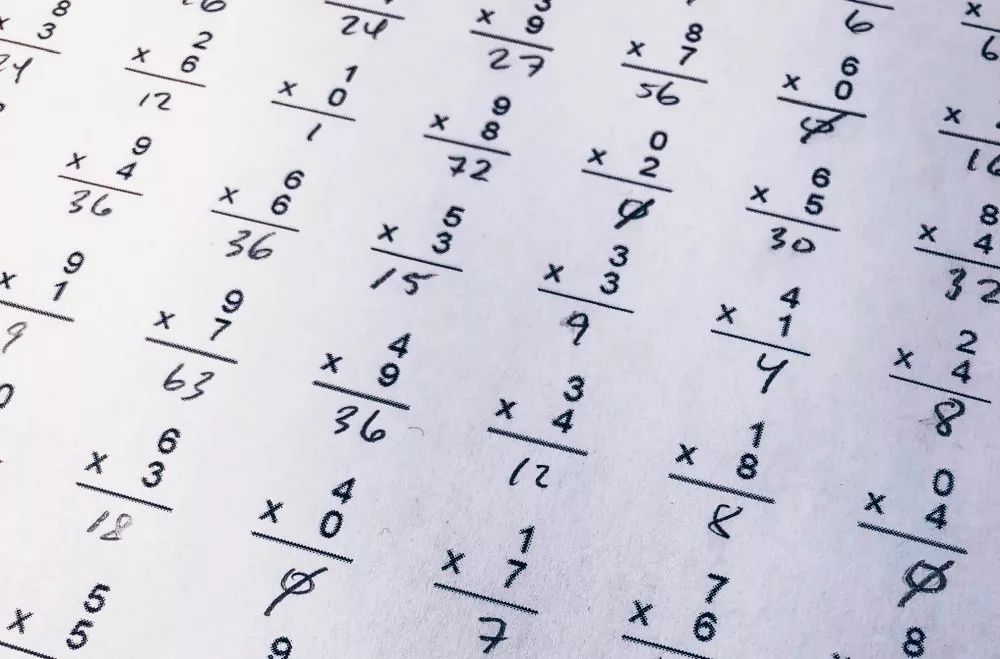 24 9 8 6
x 9 x 7 x 0
27 56 0 16
8 2 1 9 0 6 8
x 3 x 6 x 0 x 8 x 2 x 5 x 4
24 12 1 72 0 30 32
9 6 5 3 4 2
x 4 x 6 x 3 x 3 x 1 x 4
36 36 15 9 4 8
9 9 4 3 1 0
x 1 x 7 x 9 x 4 x 8 x 4
9 63 36 12 8 0
0 6 4 1 7 8
x 3 x 0 x 7 x 6
18 0 7
5 9
x 5